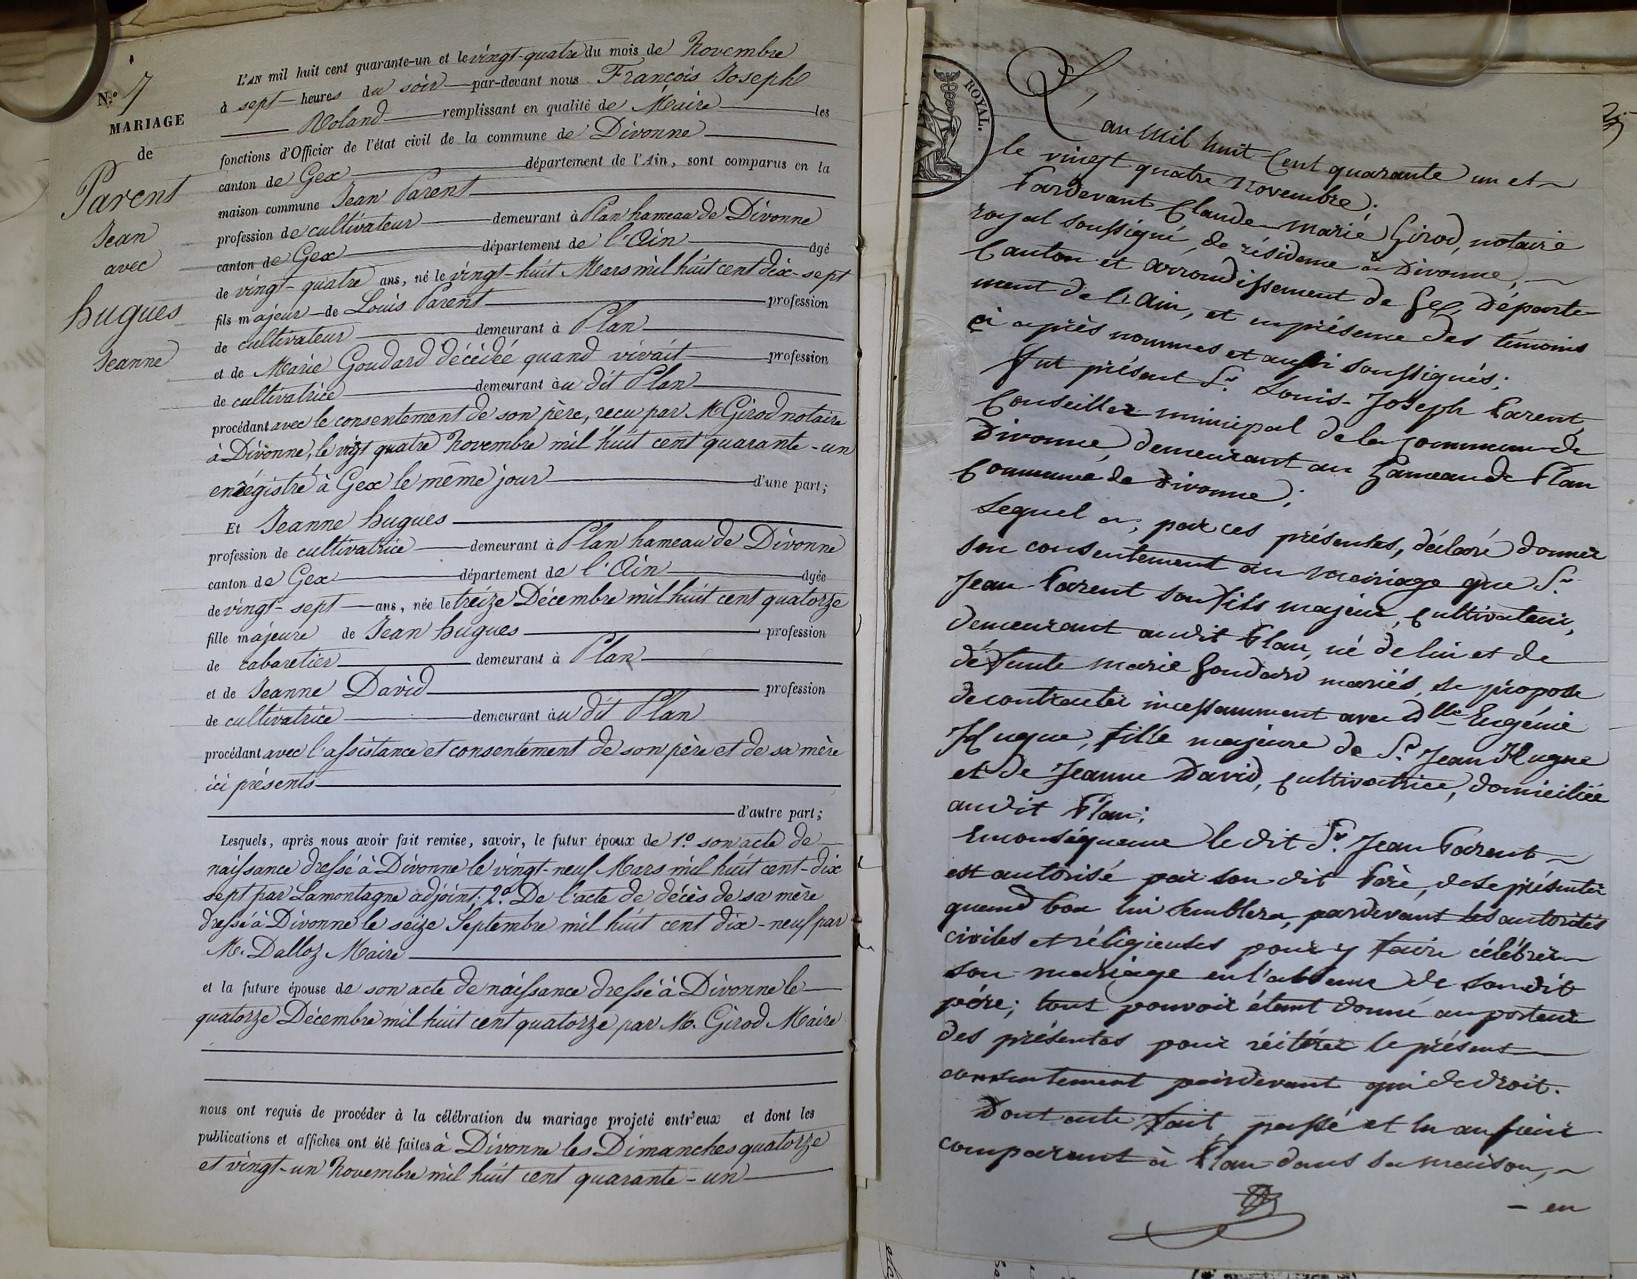 N.º 7
MARIAGE
de
Parent
Jean
avec
hugues
Jeanne
L'AN mil huit cent quarante-un et le vingt-quatre du mois de Novembre
à sept heures du soir par-devant nous François Joseph
Roland remplissant en qualité de Maire les
fonctions d'Officier de l'état civil de la commune de Divonne
canton de Gex département de l'Ain, sont comparus en la
maison commune Jean Parent
profession de cultivateur demeurant à Plan hameau de Divonne
canton de Gex département de l'Ain âgé
de vingt-quatre ans, né le vingt-huit Mars mil huit cent dix-sept
fils majeur de Louis Parent profession
de cultivateur demeurant à Plan
et de Marie Goudard décédée quand vivait profession
de cultivatrice demeurant au dit Plan
procédant avec le consentement de son père, reçu par Mr Girod notaire
à Divonne, le vingt quatre Novembre mil huit cent quarante-un
enrégistré à Gex le même jour d'une part;
Et Jeanne hugues
profession de cultivatrice demeurant à Plan hameau de Divonne
canton de Gex département de l'Ain âgée
de vingt-sept ans, née le treize Décembre mil huit cent quatorze
fille majeure de Jean hugues profession
de cabaretier demeurant à Plan
et de Jeanne David profession
de cultivatrice demeurant au dit Plan
procédant avec l'assistance et consentement de son père et de sa mère
ici présents
d'autre part;
Lesquels, après nous avoir fait remise, savoir, le futur époux de 1º son acte de
naissance dressé à Divonne le vingt-neuf Mars mil huit cent-dix
sept par Lamontagne adjoint; 2º De l'acte de décès de sa mère
dressé à Divonne le seize Septembre mil huit cent dix-neuf par
M. Dalloz Maire
et la future épouse de son acte de naissance dressé à Divonne le
quatorze Décembre mil huit cent quatorze par M. Girod Maire
nous ont requis de procéder à la célébration du mariage projeté entr'eux et dont les
publications et affiches ont été faites à Divonne les Dimanches quatorze
et vingt-un Novembre mil huit cent quarante-un
ROYAL.
L'an mil huit Cent quarante un et
le vingt quatre Novembre;
Pardevant Claude-Marie Girod, notaire
royal soussigné, de résidence à Divonne,
Canton et arrondissement de Gex, départe
ment de l'Ain, et en présence des témoins
ci après nommés et aussi soussignés;
Fut présent Sr. Louis-Joseph Parent,
Conseiller municipal de la commune de
Divonne, demeurant au hameau de Plan
Commune de Divonne;
Lequel a, par ces présentes, déclaré donner
son consentement au mariage que Sr.
Jean Parent son fils majeur, Cultivateur,
demeurant audit Plan, né de lui et de
défunte marie Goudard mariés, se propose
de contracter incessamment avec Dlle Eugénie
Hugue, fille majeure de Sr. Jean Hugue
et de Jeanne David, Cultivatrice, domiciliée
audit Plan;
En conséquence le dit Sr. Jean Parent
est autorisé par son dit Père, de se présenter
quand bon lui semblera, pardevant les autorités
civiles et réligieuses pour y faire célébrer
son mariage en l'absence de son dit
père; tout pouvoir étant donné au porteur
des présentes pour réitérer le présent
consentement pardevant qui de droit.
Dont acte Fait, passé et lu au sieur
comparant à Plan dans sa maison,
- en